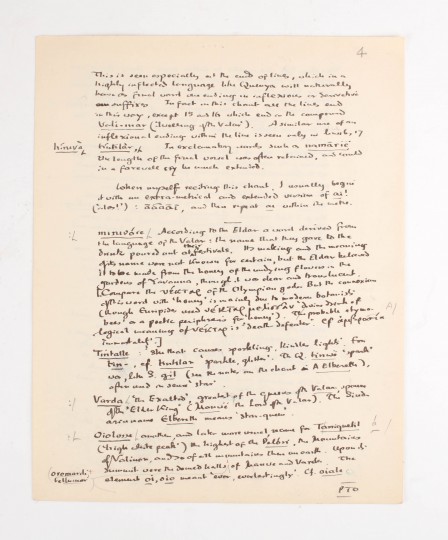 4
This is seen especially at the end of lines, which in a
highly inflected language like Quenya will naturally
have as final word one ending in inflexions or derivative
suffixes. In fact in this chant all the lines end
in this way, except 15 and 16 which end in the compound
Vali-mar (Dwelling of the Valar). A similar use of an
inflexional ending within the line is seen only in
hiruvalyë
tintilar, In exclamatory words such as namárië
the length of the final vowel was often retained, and could
in a farewell cry be much extended.
When myself reciting this chant, I usually begin
it with an extra-metrical and extended version of ai!
and then repeat ai within the metre.
miruvóre / According to the Eldar a word derived from
the language of the Valar: the name that they gave to the
drink poured out at their festivals. Its making and the meaning
of its name were not known for certain, but the Eldar believed
it to be made from the honey of the undying flowers in the
gardens of Yavanna, though it was clear and translucent.
[Compare the νέκταρ of the Olympian gods. But the connexion
of this word with 'honey' is mainly due to modern botanists
(though Euripides used νέκταρ 'divine drink of
bees' as a poetic periphrasis for 'honey'). The probable etymo-
logical meaning of νέκταρ is 'death defeater'. Cf. ἀμβροσία
'immortal'.]
Tintalle: 'She that causes sparkling, kindles light'. For
tin-, cf. tintilar 'sparkle, glitter'. The Q. tinwe 'spark'
was, like S. gil (in the note on the chant A Elbereth),
often used in sense 'star'.
Varda ('the Exalted'), greatest of the queens of the Valar, spouse
of the "Elder King" (Manwë the Lord of the Valar). The Sind-
arin name Elbereth means 'star-queen'.
Oiolosse: another, and later more usual name for Taniquetil
('high white peak') the highest of the Pelóri, the Mountains
of Valinor, and so of all mountains then on earth. Upon its
oromardi:
tellumar
summit were the domed halls of Manwe and Varda. The
element oi, oio meant 'ever, everlastingly'. Cf. oiale
PTO